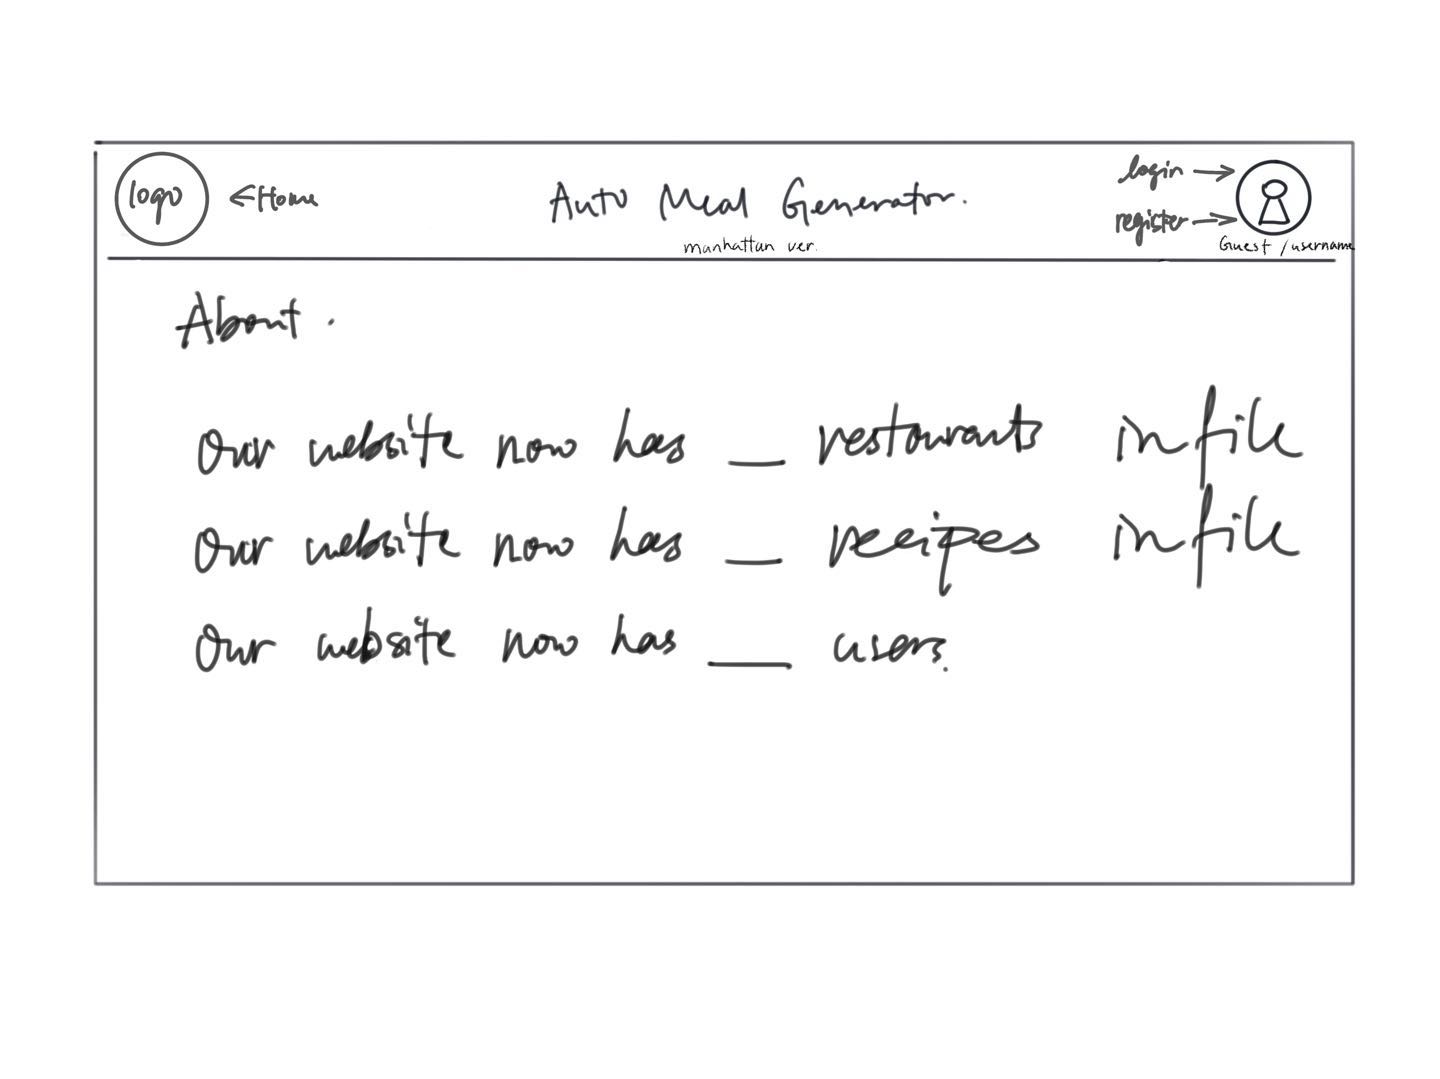 logo
←Home
Auto Meal Generator.
manhattan ver.
login →
register →
Guest / username
About .
Our website now has __ restaurants in file
Our website now has __ recipes in file
Our website now has ___ users.